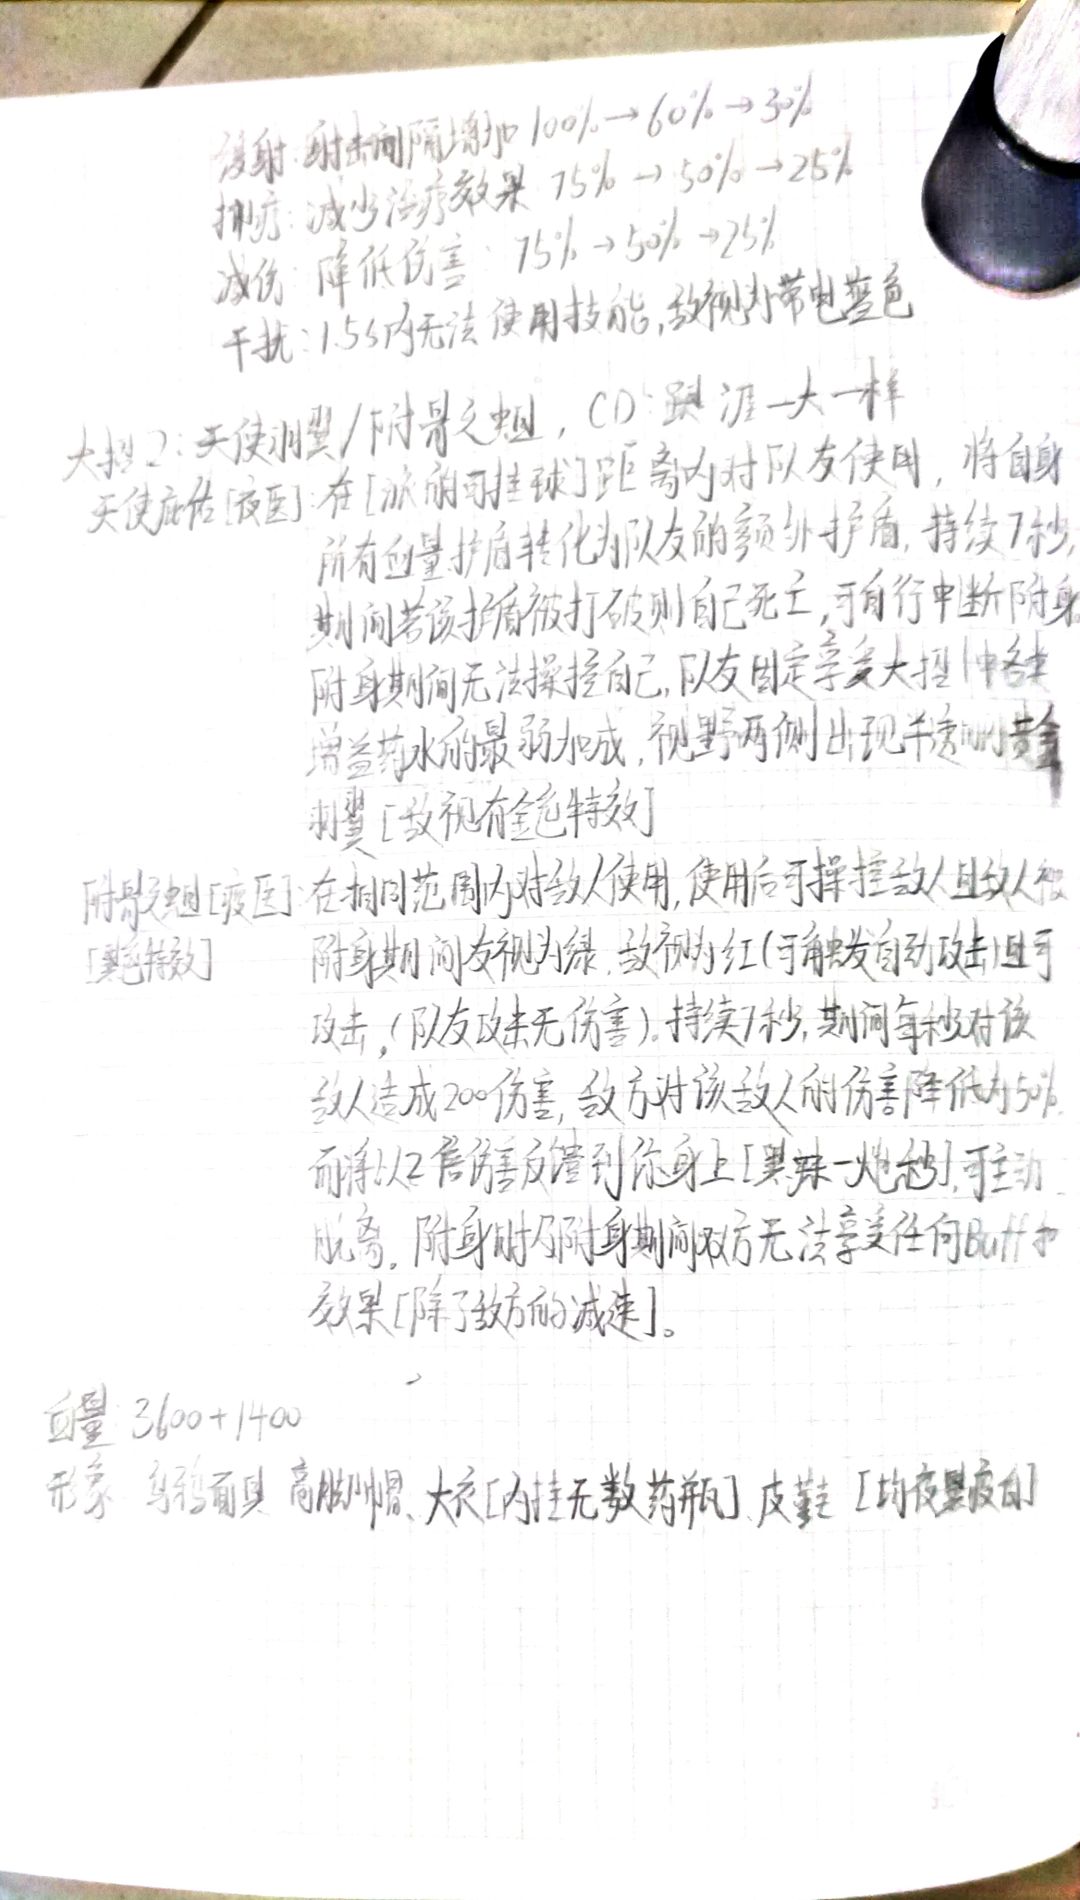 缓射:射击间隔增加100%→60%→30%
抑疗:减少治疗效果 75%→50%→25%
减伤:降低伤害:75%→50%→25%
干扰:1.5s内无法使用技能,敌视为带电蓝色
大招2:天使羽翼/附骨之蛆,CD:跟涯一大一样
天使庇佑[夜医]:在[派的可挂球]距离内对队友使用,将自身
所有血量护盾转化为队友的额外护盾,持续7秒,
期间若该护盾被打破则自己死亡,可自行中断附身。
附身期间无法操控自己,队友固定享受大招1中各类
增益药水的最弱加成,视野两侧出现半透明的黄金
羽翼[敌视有金色特效]
附骨之蛆[疫医]:在相同范围内对敌人使用,使用后可操控敌人且敌人被
[黑色特效] 附身期间友视为绿,敌视为红(可触发自动攻击)且可
攻击,(队友攻击无伤害)。持续7秒,期间每秒对该
敌人造成200伤害,敌方对该敌人的伤害降低为50%
而将以2倍伤害反馈到你身上[黑妹一炮秒],可主动
脱离。附身时及附身期间双方无法享受任何Buff和
效果[除了敌方的减速]。
血量:3600+1400
形象 乌鸦面具 高脚帽、大衣[内挂无数药瓶]、皮鞋 [均夜黑疫白]